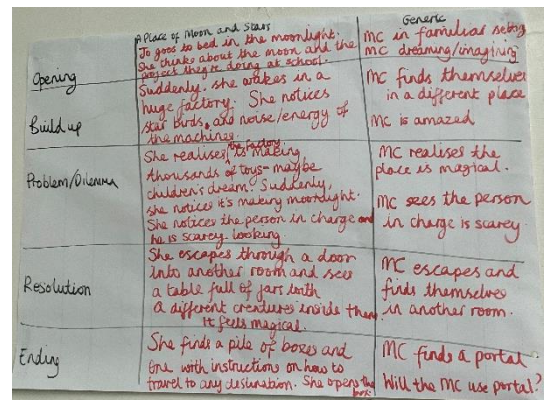 A Place of Moon and Stars
Generic
Opening
Jo goes to bed in the moonlight.
She thinks about the moon and the
project they're doing at school.
MC in familiar setting
MC dreaming/imagining
Build up
Suddenly, she wakes in a
huge factory. She notices
star birds, and noise/energy of
the machines.
MC finds themselves
in a different place
MC is amazed
Problem/Dilemma
She realises the factory is making
thousands of toys - maybe
children's dream. Suddenly,
she notices it's making moonlight.
She notices the person in charge and
he is scarey looking.
MC realises the
place is magical.
MC sees the person
in charge is scarey
Resolution
She escapes through a door
into another room and sees
a table full of jars with
a different creatures inside them.
It feels magical.
MC escapes and
finds themselves
in another room.
Ending
She finds a pile of boxes and
one with instructions on how to
travel to any destination. She opens the
box.
MC finds a portal
Will the MC use portal?